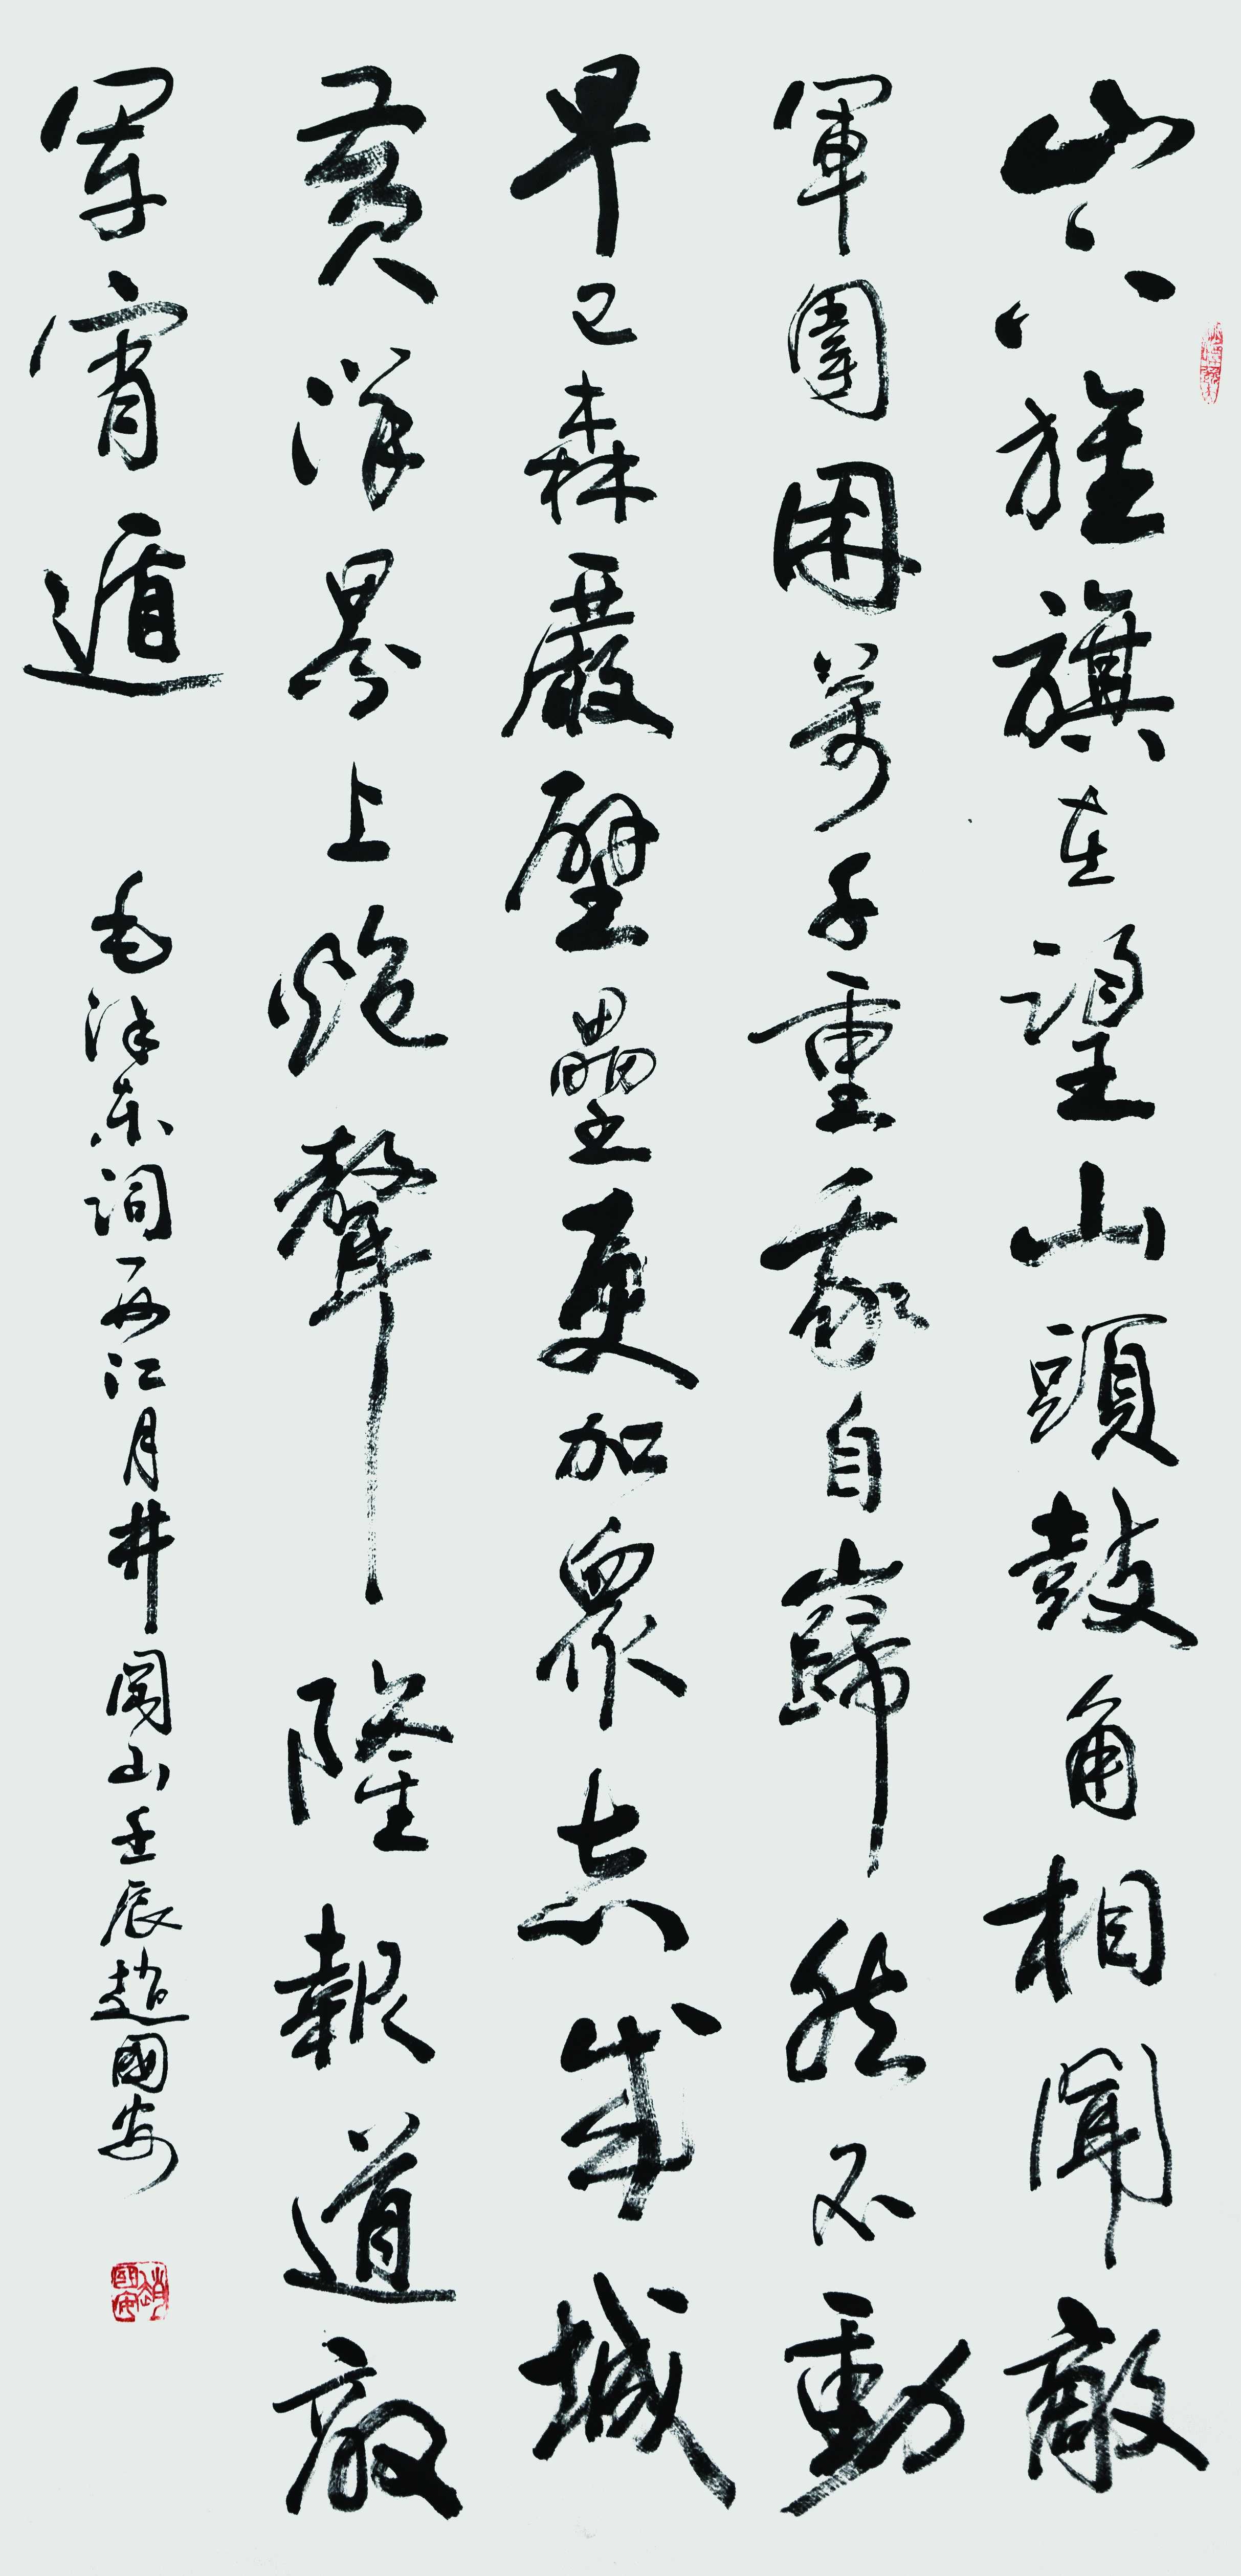 山下旌旗在望山頭鼓角相聞敵
軍圍困萬千重我自巋然不動
早已森嚴壁壘更加眾志成城
黃洋界上炮聲隆報道敵
軍宵遁
毛澤東詞西江月井岡山壬辰趙國安
趙國安